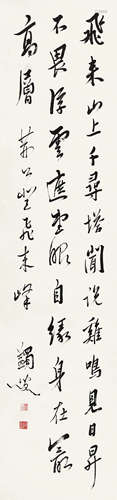 飛来山上千尋塔聞說雞鳴見日昇
不畏浮雲遮望眼自緣身在最
高層 荊公登飛来峰
蠲叟